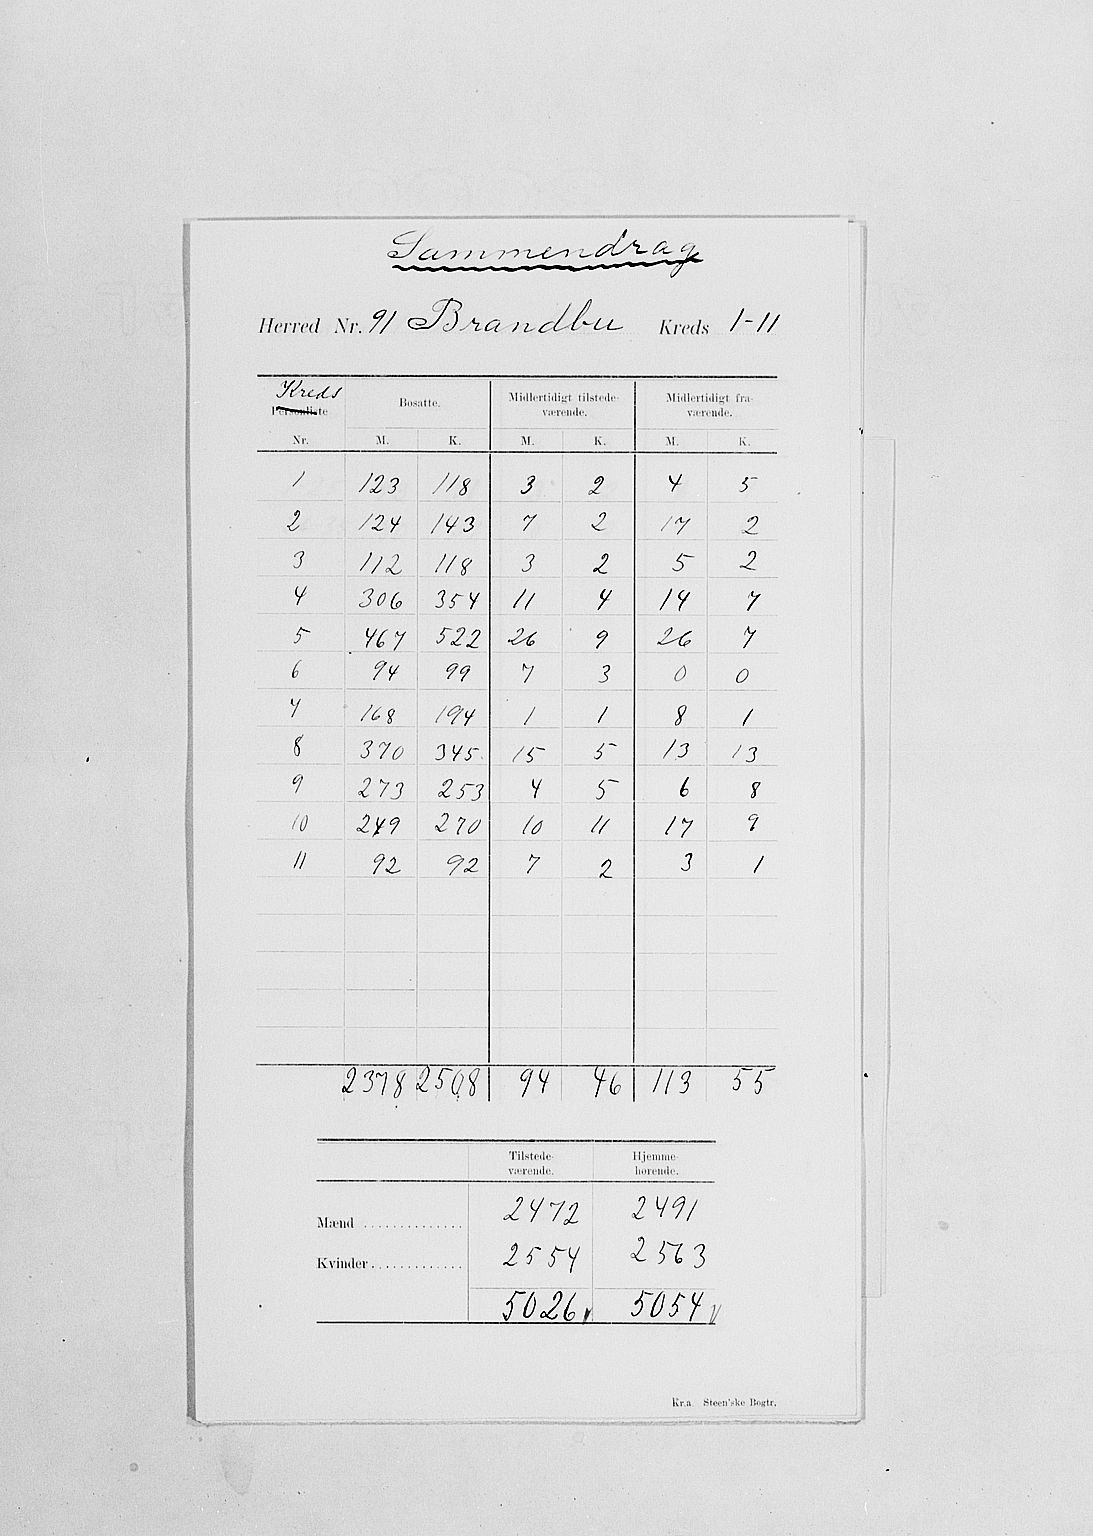 Sammendrag
Herred Nr. 91 Brandbu Kreds 1-11
Kreds
Personliste Bosatte. Midlertidigt tilstede- Midlertidigt fra-
værende. værende.
Nr. M. K. M. K. M. K.
1 123 118 3 2 4 5
2 124 143 7 2 17 2
3 112 118 3 2 5 2
4 306 354 11 4 14 7
5 467 522 26 9 26 7
6 94 99 7 3 0 0
7 168 194 1 1 8 1
8 370 345 15 5 13 13
9 273 253 4 5 6 8
10 249 270 10 11 17 9
11 92 92 7 2 3 1
2378 2508 94 46 113 55
Tilstede- Hjemme-
værende. hørende.
Mænd .............. 2472 2491
Kvinder ............. 2554 2563
5026 5054
Kr.a. Steen'ske Bogtr.